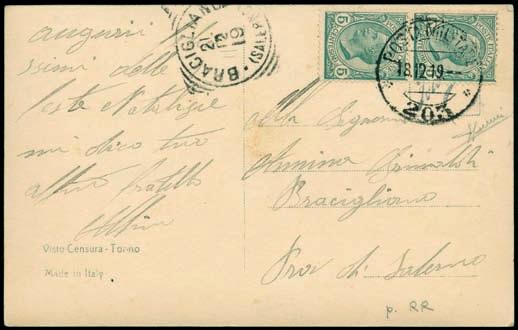 auguri
ssimi delle
feste Natalizie
mi dico tuo
aff.mo fratello
Visto Censura - Torino
Made in Italy
BRACIGLIANO (SALERNO)
21
12
19
POSTA MILITARE
18.12.19
203
Alla Signorina
Annina Grimaldi
Bracigliano
Prov di Salerno
p. RR